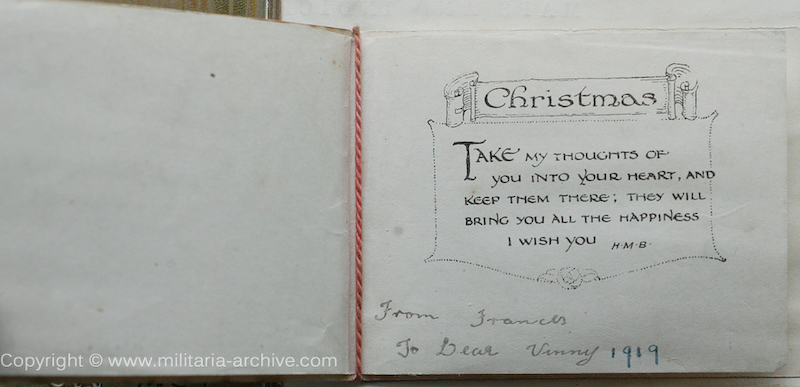 Christmas
TAKE MY THOUGHTS OF
YOU INTO YOUR HEART, AND
KEEP THEM THERE; THEY WILL
BRING YOU ALL THE HAPPINESS
I WISH YOU H.M.B.
From Frances
To Dear Vinny 1919
Copyright © www.militaria-archive.com